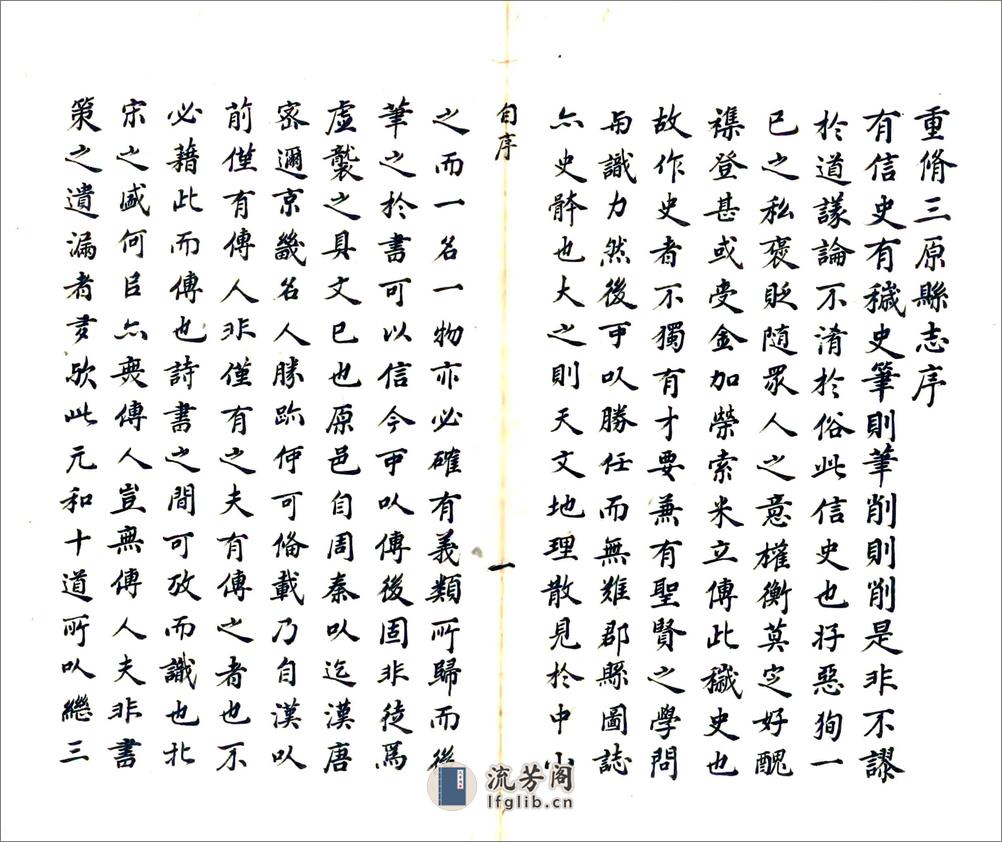 重脩三原縣志序
有信史有穢史筆則筆削則削是非不謬
於道議論不淆於俗此信史也好惡狥一
已之私褒貶随眾人之意權衡莫定好醜
襍登甚或受金加榮索米立傳此穢史也
故作史者不獨有才要兼有聖賢之學問
與識力然後可以勝任而無難郡縣圖誌
亦史骵也大之則天文地理散見於中小
自序
一
之而一名一物亦必確有義類所歸而後
筆之於書可以信今可以傳後固非徒爲
虛襲之具文已也原邑自周秦以迄漢唐
密邇京畿名人勝跡何可俻載乃自漢以
前僅有傳人非僅有之夫有傳之者也不
必藉此而傳也詩書之間可攷而識也北
宋之盛何以亦無傳人豈無傳人夫非書
策之遺漏者多歟此元和十道所以繼三
流芳阁
lfglib.cn